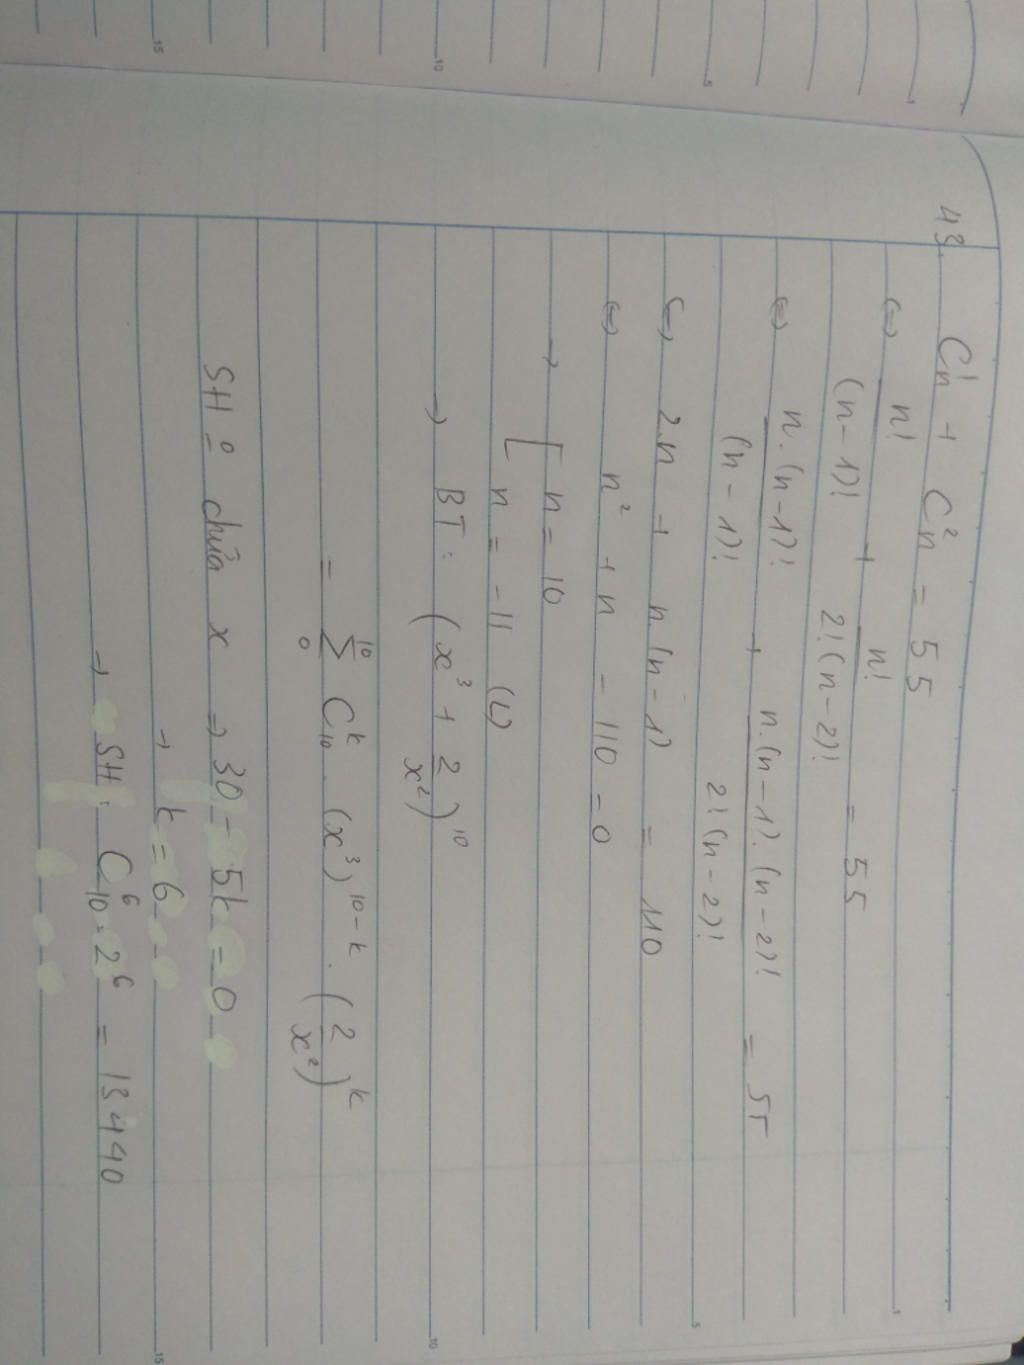 43, C¹n + C²n = 55
⇔ n!/(n-1)! + n!/2!(n-2)! = 55
⇔ n.(n-1)!/(n-1)! + n.(n-1).(n-2)!/2!(n-2)! = 55
⇔ 2.n + n.(n-1) = 110
⇔ n² + n - 110 = 0
→ [ n = 10
n = -11 (L)
→ BT: (x³ + 2/x²)¹⁰
= ¹⁰Σ₀ Cᵏ₁₀ . (x³)¹⁰⁻ᵏ . (2/x²)ᵏ
SH ko chứa x ⇒ 30 - 5k = 0
→ k = 6
→ SH: C⁶₁₀.2⁶ = 13440
1
5
10
15
1
5
10
15